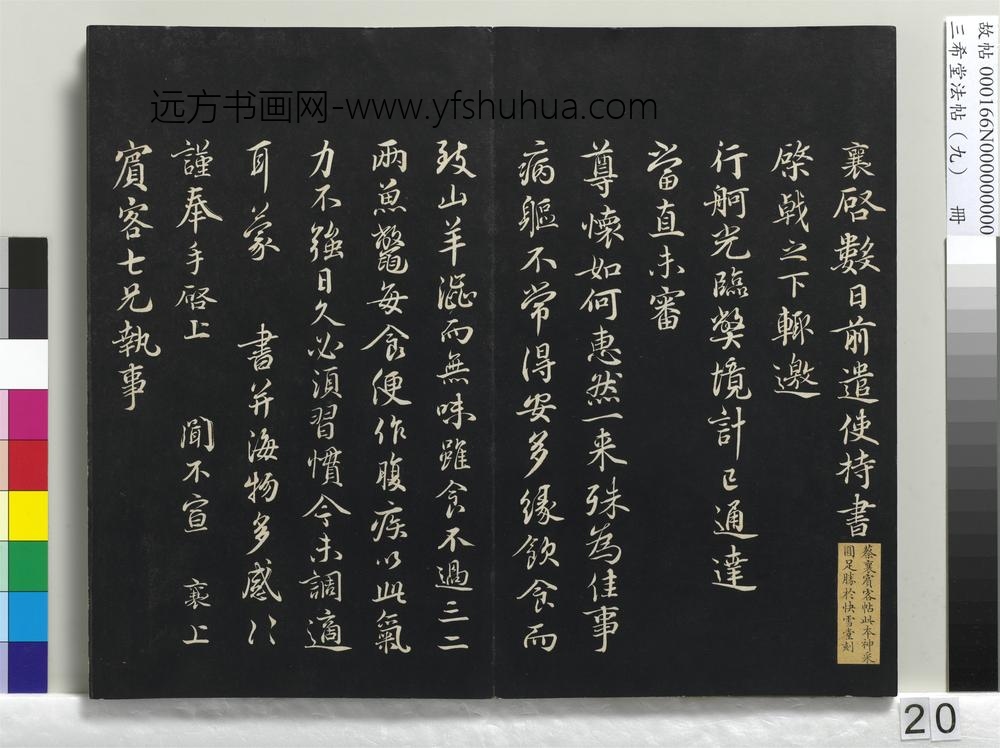 远方书画网-www.yfshuhua.com
襄啓數日前遣使持書
棨戟之下輙邀
行舸光臨弊境計已通達
當直未審
尊懷如何惠然一来殊為佳事
病軀不常得安多緣飲食而
致山羊澁而無味雖食不過三二
兩魚鱉每食便作腹疾以此氣
力不強日久必須習慣今未調適
耳蒙 書并海物多感〻
謹奉手啓上 聞不宣 襄上
賓客七兄執事
蔡襄賓客帖此本神采
圓足勝於快雪堂刻
故帖 000166N000000000
三希堂法帖（九） 冊
20